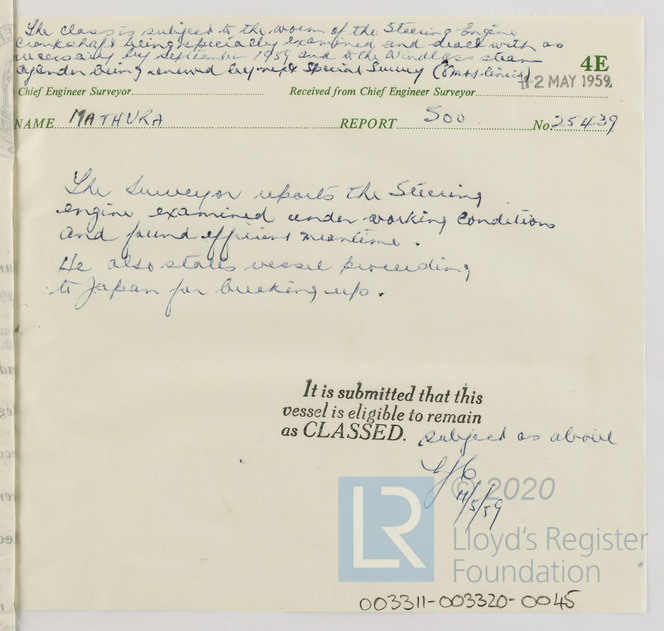 The class is subject to the worm of the Steering Engine
Crankshaft being specially examined and dealt with as
necessary by September 1959 and to the Windlass steam
cylinder being renewed by next Special Survey
4E
12 MAY 1959
Chief Engineer Surveyor
Received from Chief Engineer Surveyor
NAME MATHURA REPORT Soo No. 25439
The Surveyor reports the Steering
engine examined under working conditions
and found efficient meantime.
He also states vessel proceeding
to Japan for breaking up.
It is submitted that this
vessel is eligible to remain
as CLASSED. subject as above
11/5/59
© 2020
LR
Lloyd's Register
Foundation
003311-003320-0045